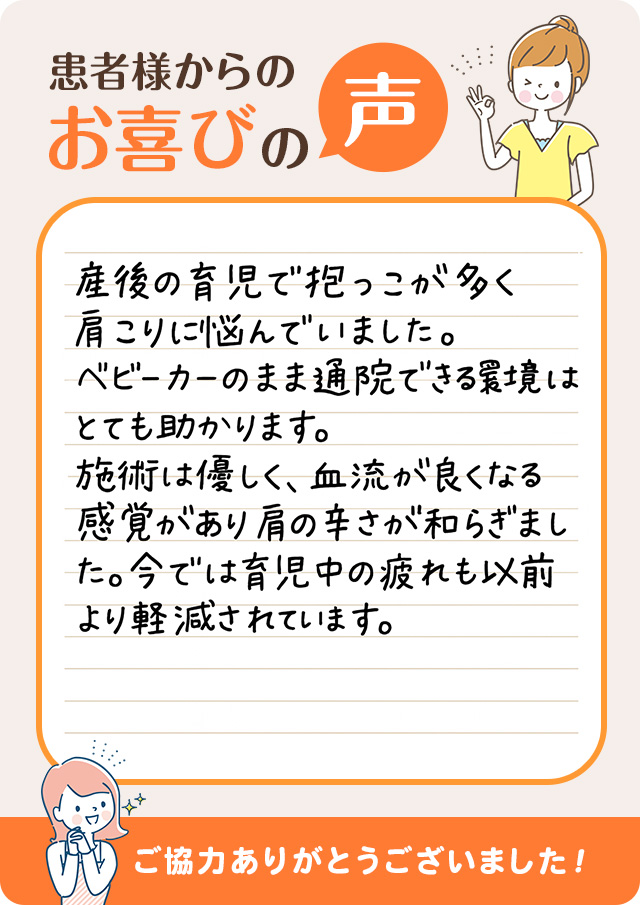 患者様からの
お喜びの声
産後の育児で抱っこが多く
肩こりに悩んでいました。
ベビーカーのまま通院できる環境は
とても助かります。
施術は優しく、血流が良くなる
感覚があり肩の辛さが和らぎまし
た。今では育児中の疲れも以前
より軽減されています。
ご協力ありがとうございました!